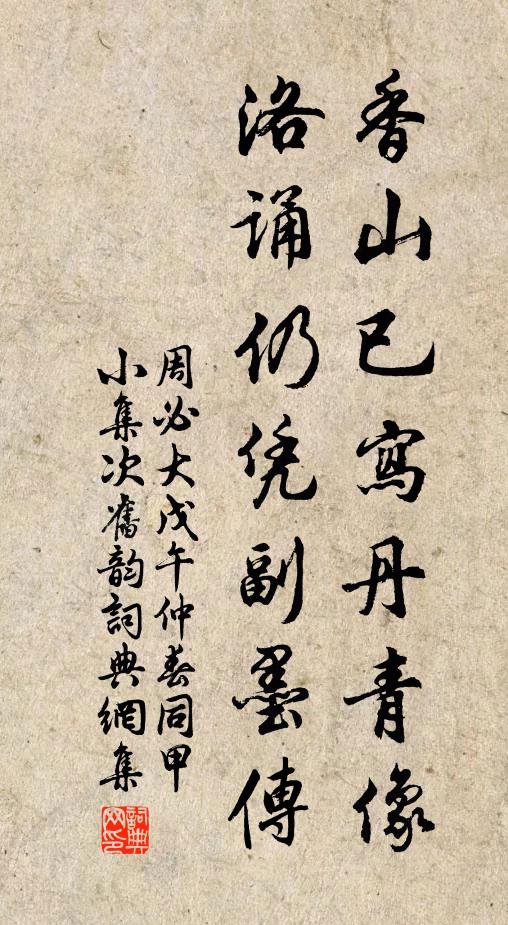 香山已寫丹青像
洛誦仍凭副墨傳
周必大戊午仲春同甲
小集次舊韵詞典網集
詞典
网印